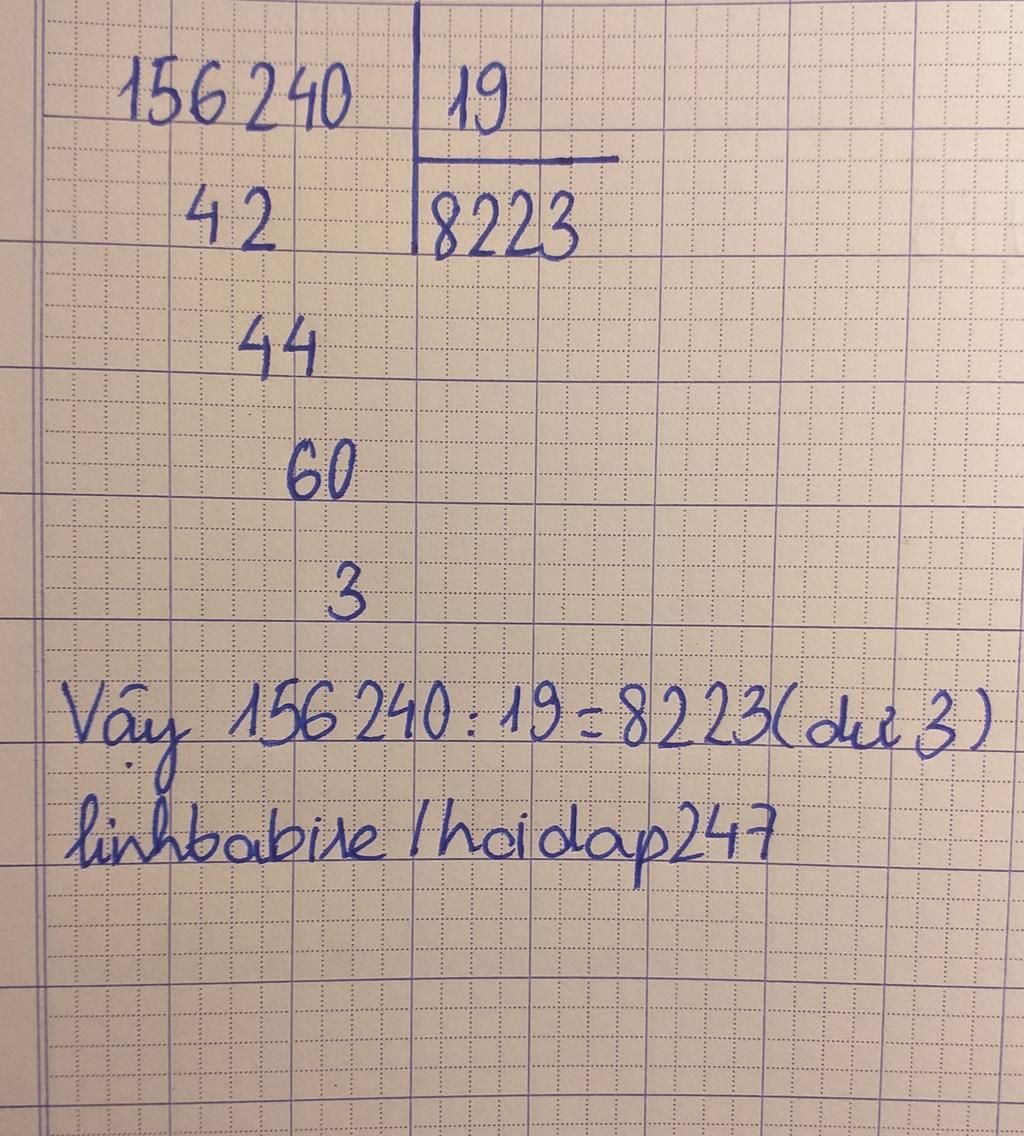 156240 19
42 8223
44
60
3
Vậy 156240 : 19 = 8223 (dư 3)
linhbabixe / hoidap247